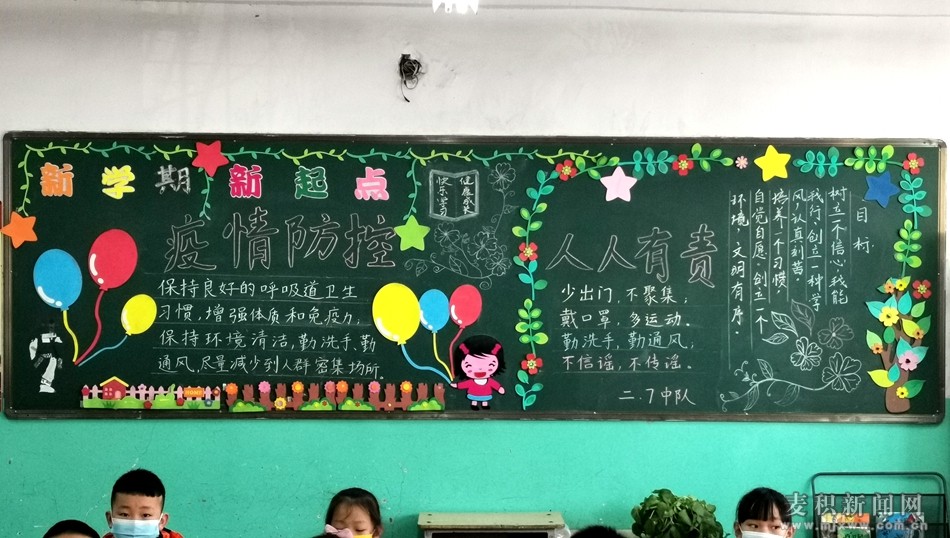 新学期新起点
健康成长
快乐学习
疫情防控
保持良好的呼吸道卫生
习惯，增强体质和免疫力，
保持环境清洁，勤洗手，勤
通风，尽量减少到人群密集场所。
人人有责
少出门，不聚集；
戴口罩，多运动。
勤洗手，勤通风，
不信谣，不传谣。
二.7中队
目标
树立一个信心，我能
我行，创立一种学
风，认真刻苦，
培养一个习惯，
自觉自愿，创立一个
环境，文明有序。
麦积新闻网
www.mjxww.com.cn